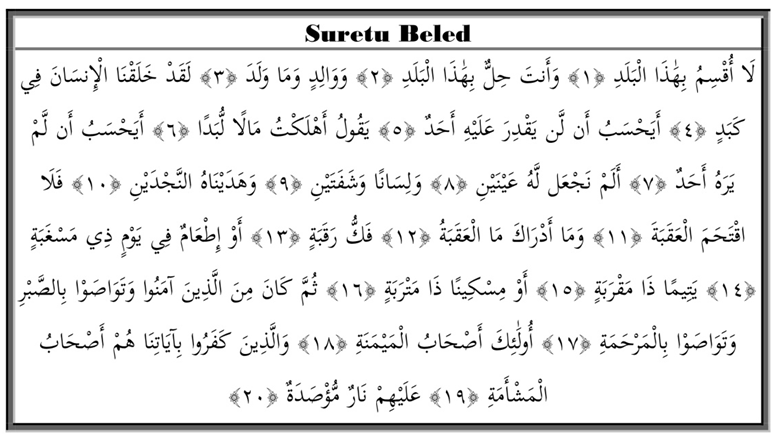 Suretu Beled
لَا أُقْسِمُ بِهَٰذَا الْبَلَدِ ﴿١﴾ وَأَنتَ حِلٌّ بِهَٰذَا الْبَلَدِ ﴿٢﴾ وَوَالِدٍ وَمَا وَلَدَ ﴿٣﴾ لَقَدْ خَلَقْنَا الْإِنسَانَ فِي
كَبَدٍ ﴿٤﴾ أَيَحْسَبُ أَن لَّن يَقْدِرَ عَلَيْهِ أَحَدٌ ﴿٥﴾ يَقُولُ أَهْلَكْتُ مَالًا لُّبَدًا ﴿٦﴾ أَيَحْسَبُ أَن لَّمْ
يَرَهُ أَحَدٌ ﴿٧﴾ أَلَمْ نَجْعَل لَّهُ عَيْنَيْنِ ﴿٨﴾ وَلِسَانًا وَشَفَتَيْنِ ﴿٩﴾ وَهَدَيْنَاهُ النَّجْدَيْنِ ﴿١٠﴾ فَلَا
اقْتَحَمَ الْعَقَبَةَ ﴿١١﴾ وَمَا أَدْرَاكَ مَا الْعَقَبَةُ ﴿١٢﴾ فَكُّ رَقَبَةٍ ﴿١٣﴾ أَوْ إِطْعَامٌ فِي يَوْمٍ ذِي مَسْغَبَةٍ
﴿١٤﴾ يَتِيمًا ذَا مَقْرَبَةٍ ﴿١٥﴾ أَوْ مِسْكِينًا ذَا مَتْرَبَةٍ ﴿١٦﴾ ثُمَّ كَانَ مِنَ الَّذِينَ آمَنُوا وَتَوَاصَوْا بِالصَّبْرِ
وَتَوَاصَوْا بِالْمَرْحَمَةِ ﴿١٧﴾ أُولَٰئِكَ أَصْحَابُ الْمَيْمَنَةِ ﴿١٨﴾ وَالَّذِينَ كَفَرُوا بِآيَاتِنَا هُمْ أَصْحَابُ
الْمَشْأَمَةِ ﴿١٩﴾ عَلَيْهِمْ نَارٌ مُّؤْصَدَةٌ ﴿٢٠﴾